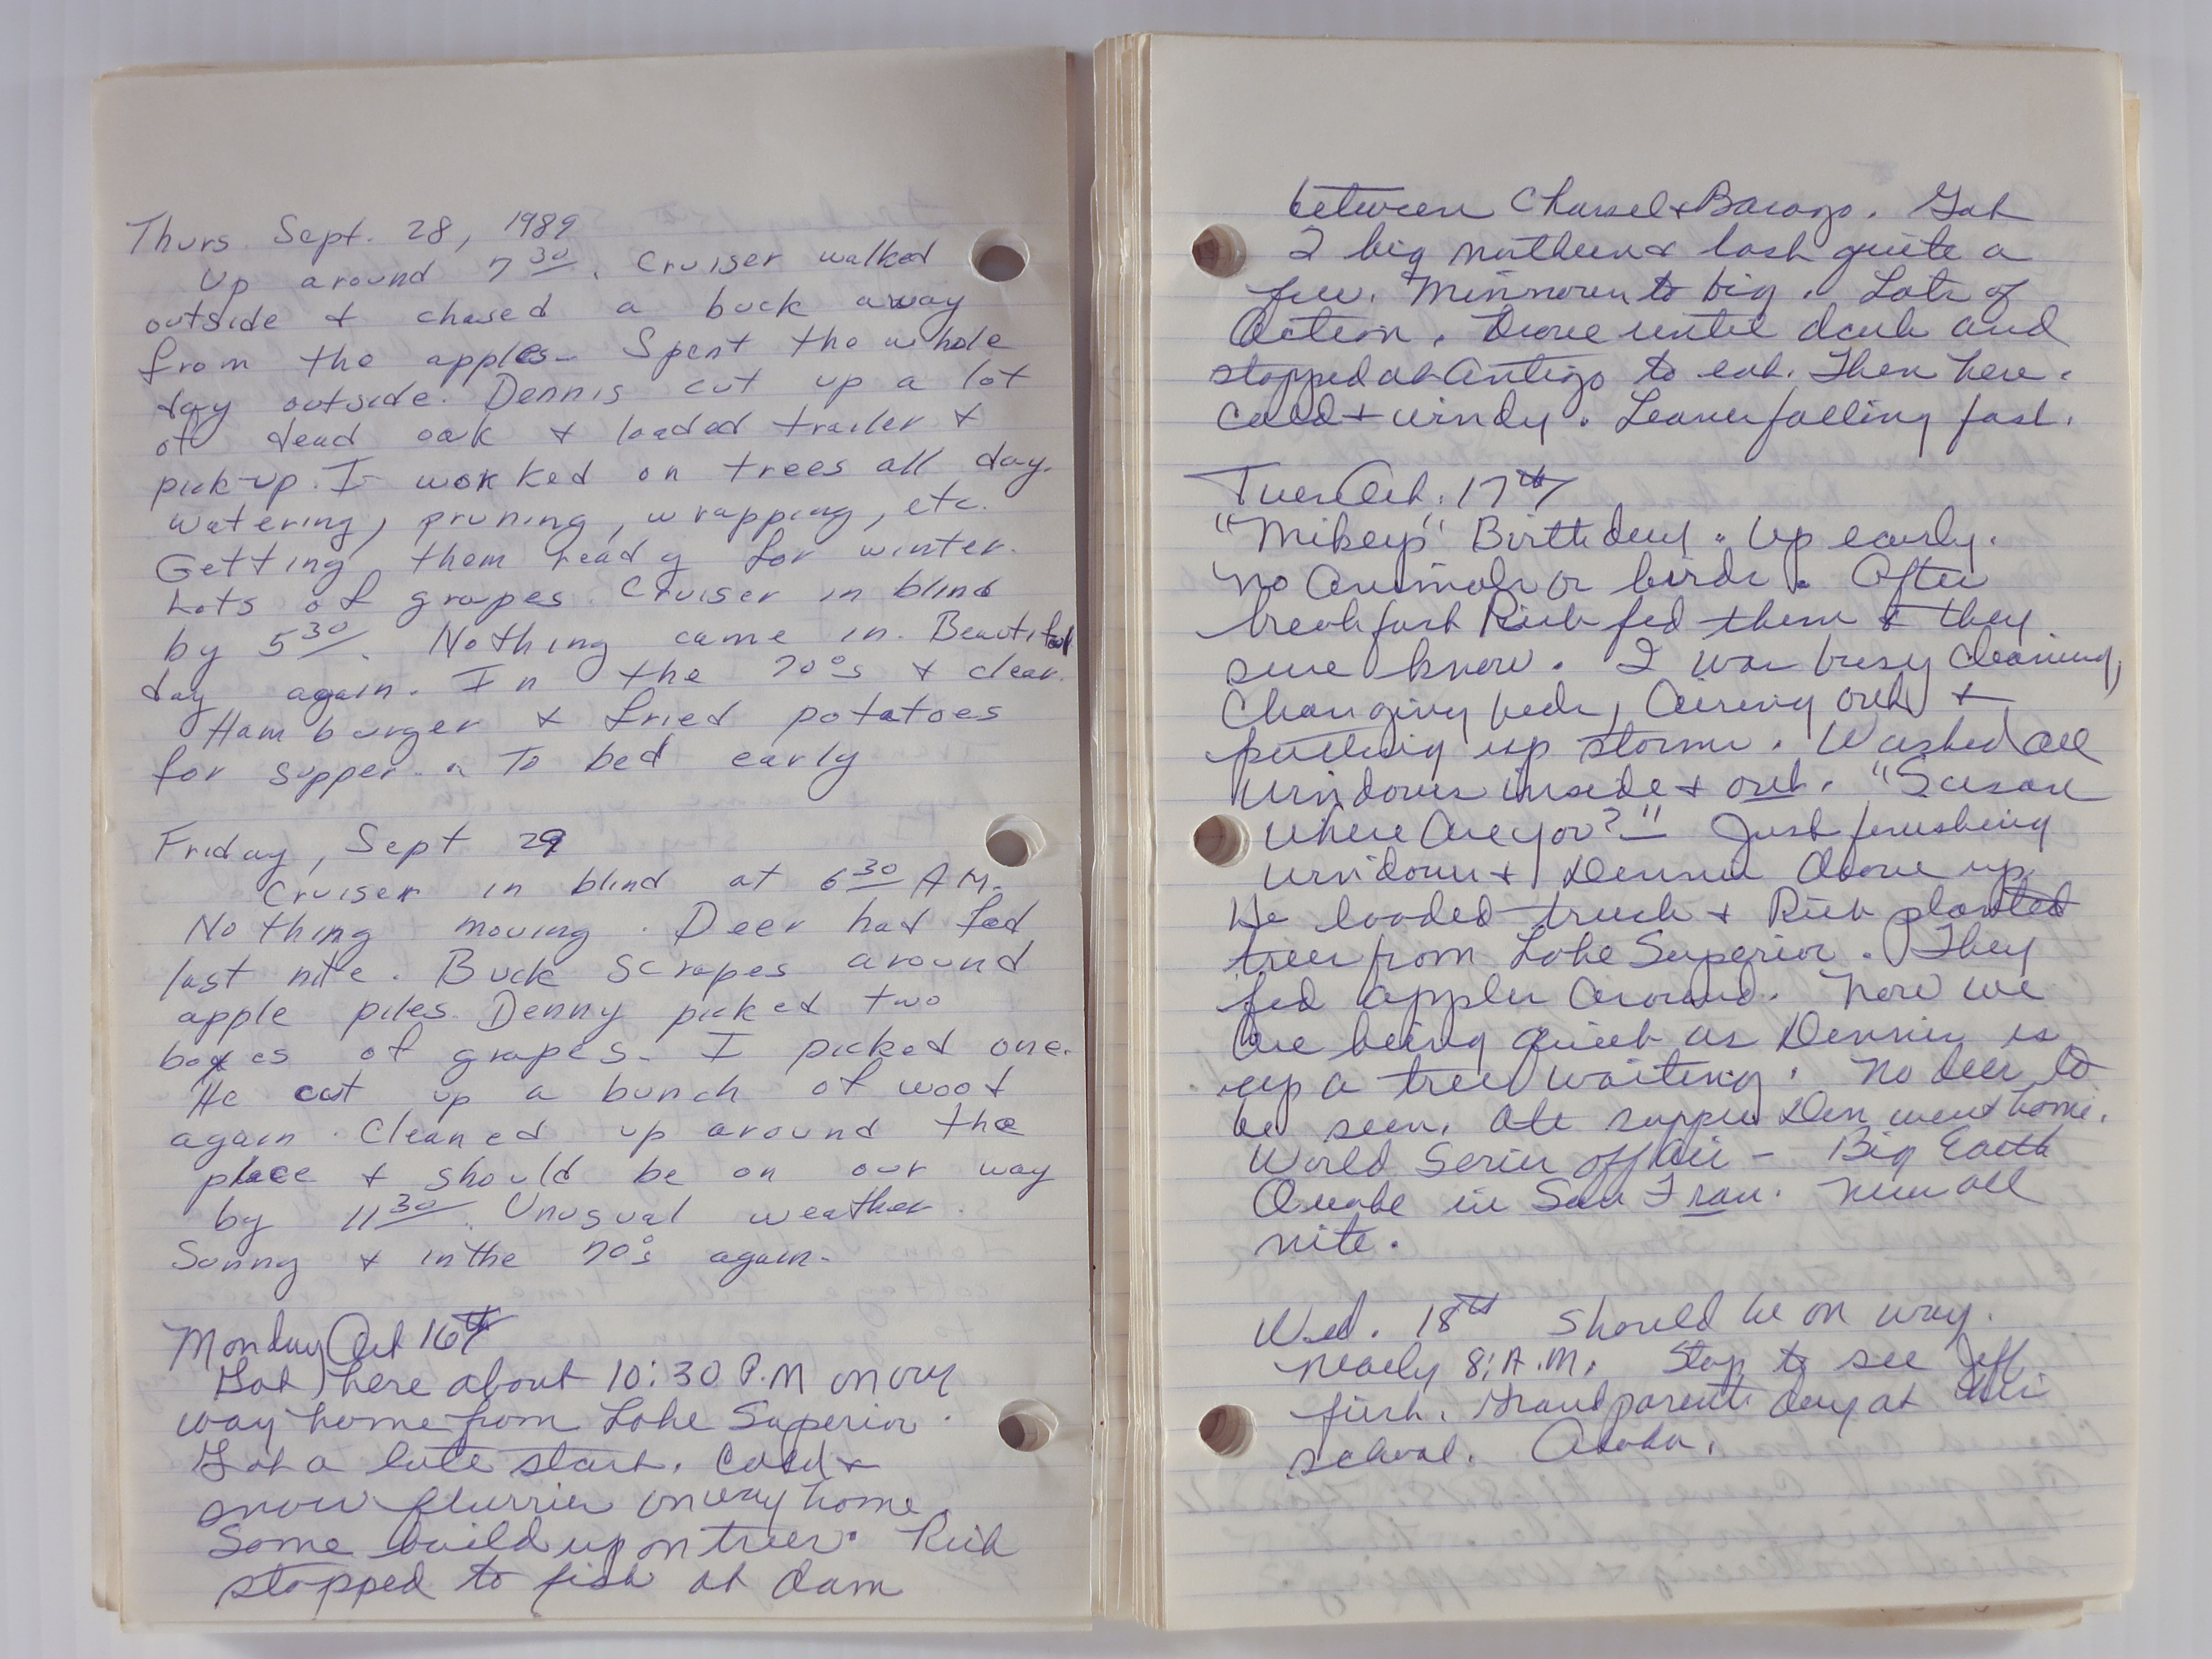 Thurs. Sept. 28, 1989
Up around 7 30. Cruiser walked
outside & chased a buck away
from the apples. Spent the whole
day outside. Dennis cut up a lot
of dead oak & loaded trailer &
pick-up. I worked on trees all day.
Watering, pruning, wrapping, etc.
Getting them ready for winter.
Lots of grapes. Cruiser in blind
by 5 30. Nothing came in. Beautiful
day again. In the 70°s & clear.
Hamburger & fried potatoes
for supper. To bed early
Friday, Sept 29
Cruiser in blind at 6 30 A.M.
Nothing moving. Deer had fed
last nite. Buck scrapes around
apple piles. Denny picked two
boxes of grapes. I picked one.
He cut up a bunch of wood
again. Cleaned up around the
place & should be on our way
by 11 30. Unusual weather.
Sunny & in the 70°s again.
Monday Oct 16th
Got here about 10:30 P.M on our
way home from Lake Superior.
Got a late start. Cold &
snow flurries on way home.
Some build up on trees. Rich
stopped to fish at dam
between Chassel & Baraga. Got
2 big northern & lost quite a
few. Minnows to big. Lots of
action. Drove until dark and
stopped at Antigo to eat. Then here.
Cold & windy. Leaves falling fast.
Tues Oct. 17th
"Mikeys" Birthday. Up early.
No animals or birds. After
breakfast Rich fed them & they
sure know. I was busy cleaning,
changing beds, airing out &
putting up storms. Washed all
windows inside & out. "Susan
where are you?" Just finishing
windows & Dennis drove up.
He loaded truck & Rich planted
trees from Lake Superior. They
fed apples around. Now we
are being quiet as Dennis is
up a tree waiting. No deer to
be seen. Ate supper Den went home.
World Series off air - Big Earth
Quake in San Fran. News all
nite.
Wed. 18th Should be on way.
nearly 8: A.M. Stop to see Jeff
first. Grandparents day at
school.